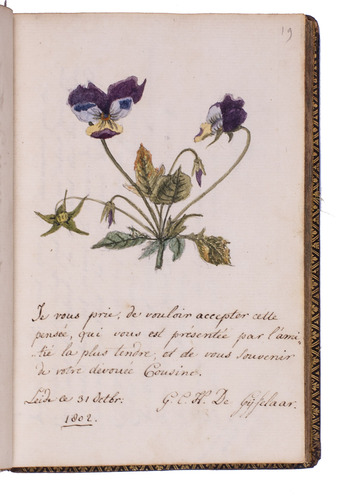 19
Je vous prie, de vouloir accepter cette
pensée, qui vous est présentée par l'ami-
-tié la plus tendre, et de vous souvenir
de votre devouée Cousine.
Leide ce 31 Octbr: G. C. Hce De Gijselaar.
1802.